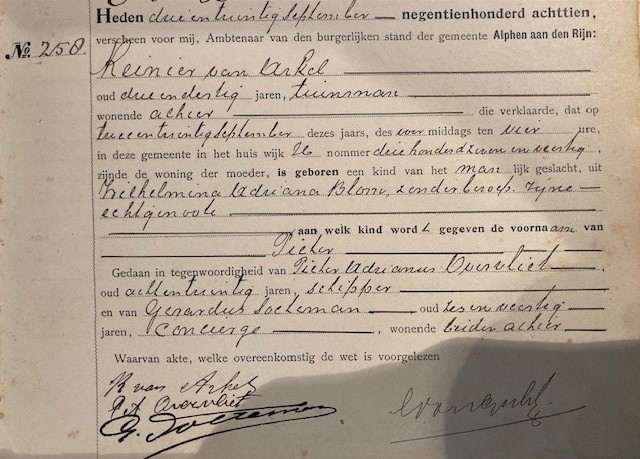 Heden drie en twintig September negentienhonderd achttien,
verscheen voor mij, Ambtenaar van den burgerlijken stand der gemeente Alphen aan den Rijn:
No. 258.
Reinier van Arkel
oud drie en dertig jaren, tuinman
wonende alhier die verklaarde, dat op
twee en twintig September dezes jaars, des voor middags ten vier ure,
in deze gemeente in het huis wijk nommer driehonderd zeven en veertig,
zijnde de woning der moeder, is geboren een kind van het man lijk geslacht, uit
Wilhelmina Adriana Blom, zonder beroep, zijne
echtgenoote
aan welk kind word t gegeven de voornaam van
Pieter
Gedaan in tegenwoordigheid van Pieter Adrianus Overvliet,
oud acht en twintig jaren, schipper
en van Gerardus Soeteman oud zes en veertig
jaren, concierge, wonende beiden alhier
Waarvan akte, welke overeenkomstig de wet is voorgelezen
R van Arkel
P. A. Overvliet
G. Soeteman